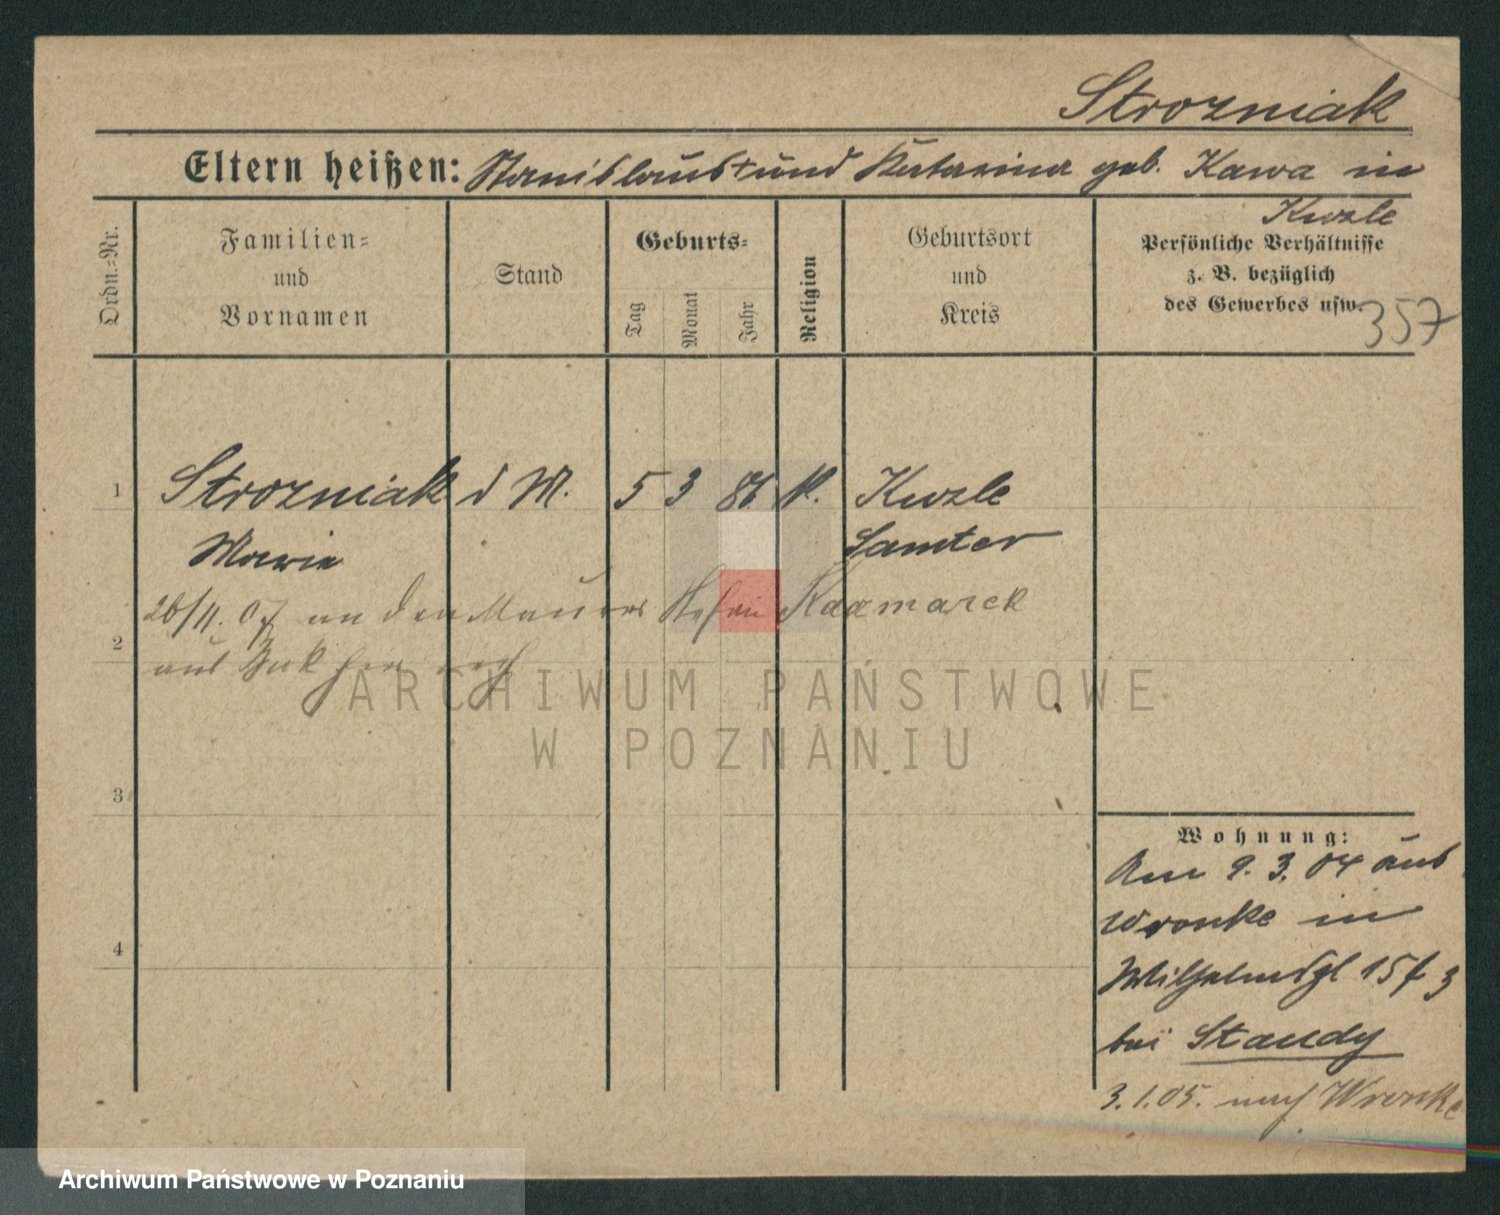 Strozniak
Eltern heißen: Stanislaus + und Katarina geb. Kawa in
Kwzle
Ordn.=Nr.
Familien=
und
Vornamen
Stand
Geburts=
Tag
Monat
Jahr
Religion
Geburtsort
und
Kreis
Persönliche Verhältnisse
z. B. bezüglich
des Gewerbes usw.
357
1
Strozniak d M. 5 3 86 K. Kwzle
Maria Samter
26/11.07 an den Maurer Kaczmarek
2
aus Buk
ARCHIWUM PAŃSTWOWE
W POZNANIU
3
4
Wohnung:
Am 9.3.04 aus
Wronke in
15
bei Staudy
3.1.05. nach Wronke
Archiwum Państwowe w Poznaniu